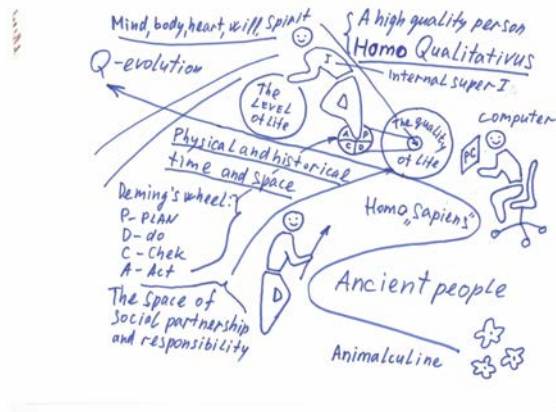 Mind, body, heart, will, spirit
A high quality person
Homo Qualitativus
I
internal super I
Q-evolution
The
LEVEL
of life
A P
C D
The quality
of life
computer
PC
Physical and historical
time and space
Deming's wheel:
P- PLAN
D- do
C- Chek
A- Act
Homo „Sapiens"
The space of
social partnership
and responsibility
Ancient people
Animalculine